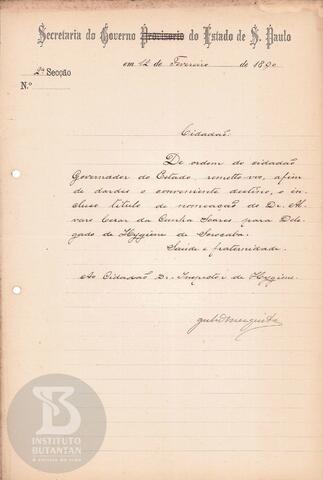 Secretaria do Governo Provisorio do Estado de S. Paulo
em 12 de Fevereiro de 1890
2ª Secção
N.º
Cidadão
De ordem do cidadão
Governador do Estado, remetto-vos, afim
de dardes o conveniente destino, o in-
cluso titulo de nomeação do Dr. Al-
varo Cezar da Cunha Soares para Dele-
gado de Hygiene de Sorocaba.
Saúde e fraternidade.
Ao Cidadão Dr. Inspector de Hygiene
Mesquita
INSTITUTO
BUTANTAN
A serviço da vida